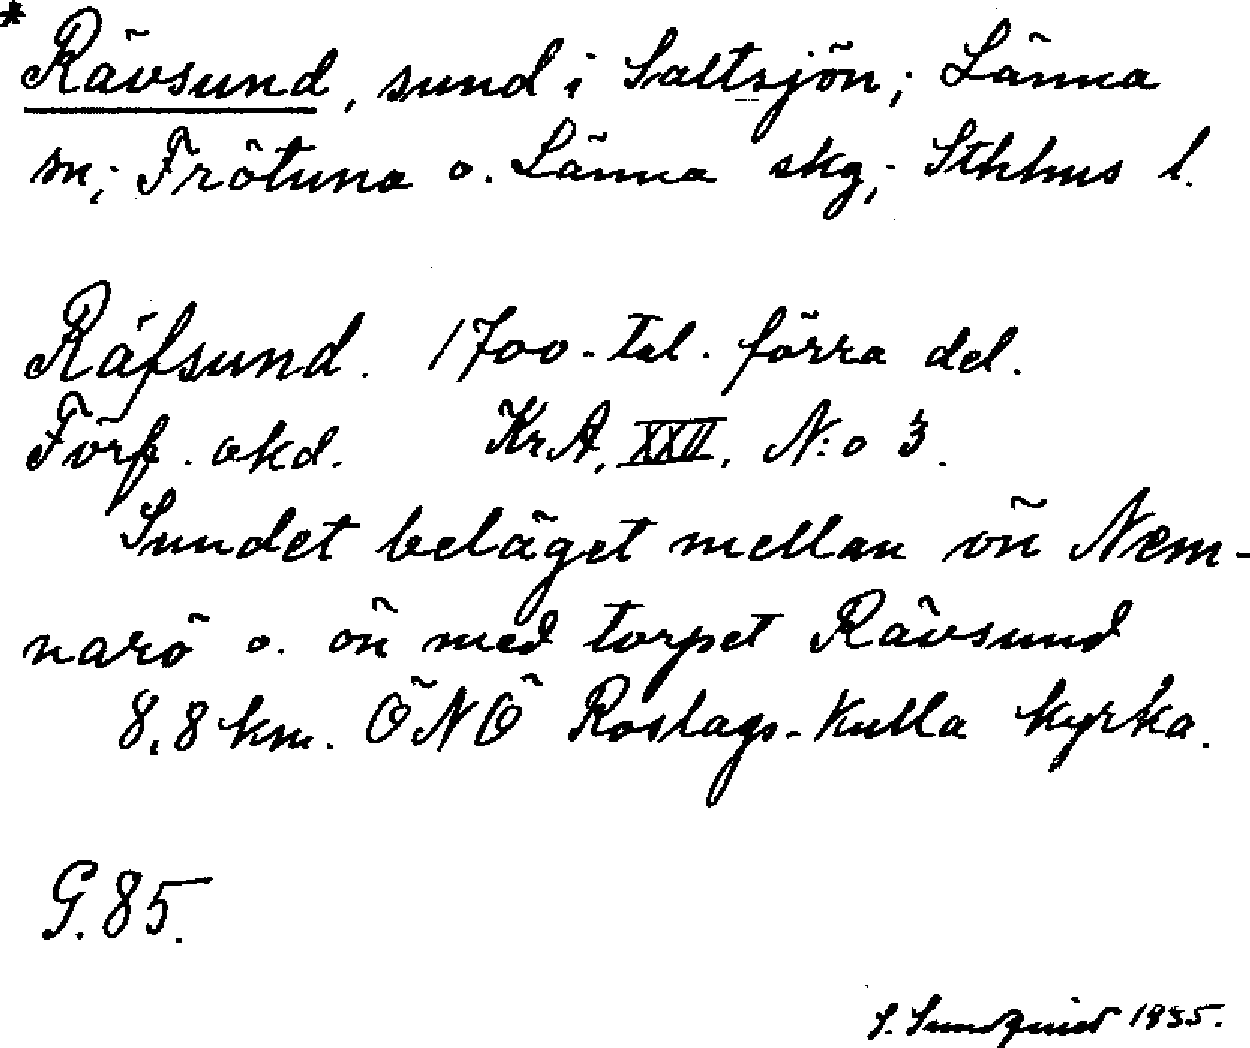 * Rävsund, sund i Saltsjön; Länna
sn; Frötuna o. Länna skg; Sthlms l.
Räfsund. 1700-tal. förra del.
Förf. okd. KrA, XXII, N:o 3.
Sundet beläget mellan ön Nem-
narö o. ön med torpet Rävsund
8,8 km. ÖNÖ Roslags-Kulla kyrka.
G. 85.
S. Sundquist 1935.